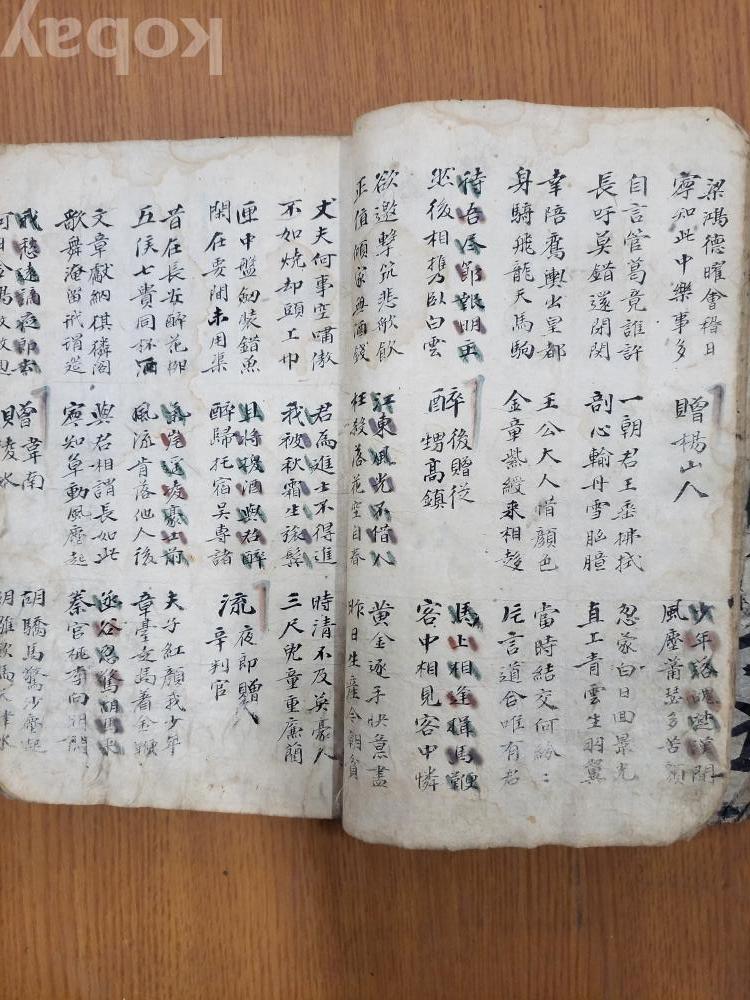 梁鴻德曜會稽日
寧知此中樂事多
贈楊山人
少年落魄楚漢間
風塵蕭瑟多苦顏
自言管葛竟誰許
長吁莫錯還閉関
一朝君王垂拂拭
剖心輸丹雪胸臆
忽蒙白日回景光
直上青雲生羽翼
幸陪鸞輿出皇都
身騎飛龍天馬駒
王公大人借顏色
金章紫綬來相趨
當時結交何紛〻
片言道合唯有君
待吾盡節報明主
然後相携臥白雲
醉後贈從
甥高鎮
馬上相逢揖馬鞭
客中相見客中憐
欲邀擊筑悲歌飮
正值傾家無酒錢
江東風光不借人
枉殺落花空自春
黃金逐手快意盡
昨日生產今朝貧
丈夫何事空嘯傲
不如燒却頭上巾
君為進士不得進
我被秋霜生旅鬂
時清不及英豪人
三尺兒童重廉藺
匣中盤劒裝錯魚
閑在要間未用渠
且將換酒與君醉
醉歸托宿吳專諸
流夜郎贈
辛判官
昔在長安醉花柳
五侯七貴同杯酒
氣岸遙凌豪士前
風流肯落他人後
夫子紅顏我少年
章臺走馬着金鞭
文章獻納麒麟閣
歌舞淹留玳瑁筵
與君相謂長如此
寧知草動風塵起
函谷忽驚胡馬來
秦宮桃李向胡開
我愁遠謫夜郎去
何日金鷄放赦回
贈韋南
陵冰
胡驕馬驚沙塵起
胡雛飮馬天津水
kobay